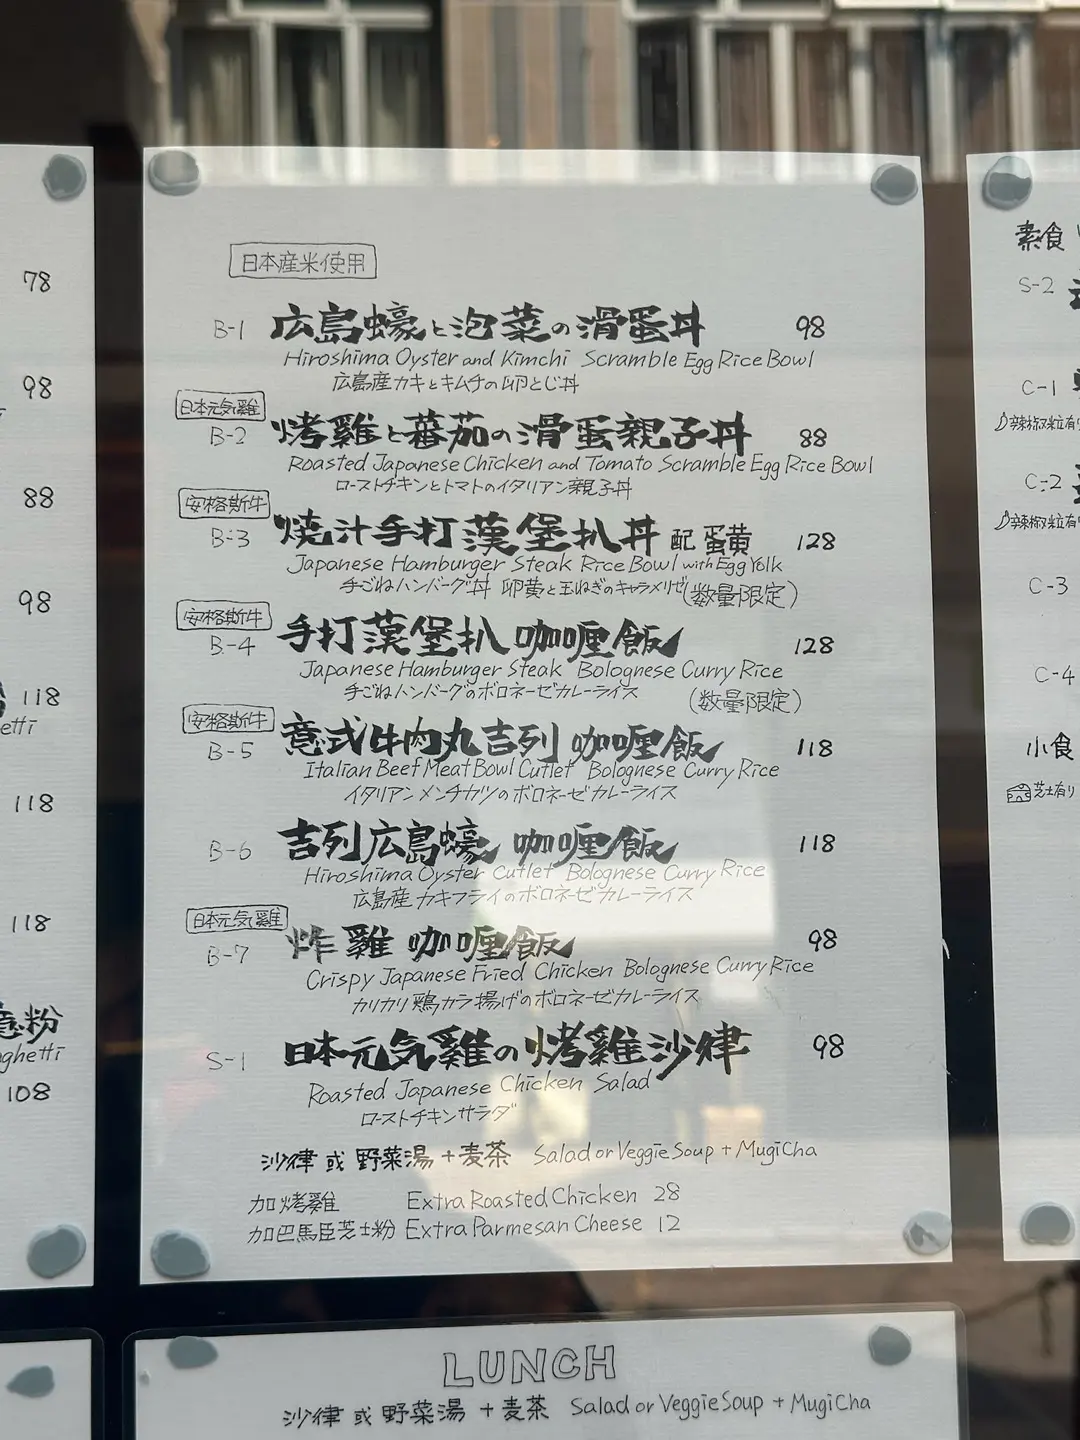 78
98
88
98
118
etti
118
118
意粉
ghetti
108
日本産米使用
B-1 広島蠔と泡菜の滑蛋丼 98
Hiroshima Oyster and Kimchi Scramble Egg Rice Bowl
広島産カキとキムチの卵とじ丼
日本元気雞
B-2 烤雞と蕃茄の滑蛋親子丼 88
Roasted Japanese Chicken and Tomato Scramble Egg Rice Bowl
ローストチキンとトマトのイタリアン親子丼
安格斯牛
B-3 燒汁手打漢堡扒丼 配蛋黄 128
Japanese Hamburger Steak Rice Bowl with Egg Yolk
手ごねハンバーグ丼 卵黄と玉ねぎのキャラメリゼ(数量限定)
安格斯牛
B-4 手打漢堡扒 咖喱飯 128
Japanese Hamburger Steak Bolognese Curry Rice
手ごねハンバーグのボロネーゼカレーライス (数量限定)
安格斯牛
B-5 意式牛肉丸吉列 咖喱飯 118
Italian Beef Meat Bowl Cutlet Bolognese Curry Rice
イタリアンメンチカツのボロネーゼカレーライス
B-6 吉列広島蠔 咖喱飯 118
Hiroshima Oyster Cutlet Bolognese Curry Rice
広島産カキフライのボロネーゼカレーライス
日本元気雞
B-7 炸雞 咖喱飯 98
Crispy Japanese Fried Chicken Bolognese Curry Rice
カリカリ鶏カラ揚げのボロネーゼカレーライス
S-1 日本元気雞の烤雞沙律 98
Roasted Japanese Chicken Salad
ローストチキンサラダ
沙律 或 野菜湯 + 麦茶 Salad or Veggie Soup + Mugi Cha
加烤雞 Extra Roasted Chicken 28
加巴馬臣芝士粉 Extra Parmesan Cheese 12
素食
S-2
C-1
辣椒粒有
C-2
辣椒粒有
C-3
C-4
小食
芝士有り
LUNCH
沙律 或 野菜湯 + 麦茶 Salad or Veggie Soup + Mugi Cha